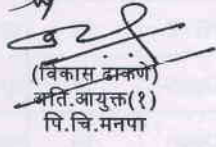 (विकास ढाकणे)
अति.आयुक्त(१)
पि.चि.मनपा